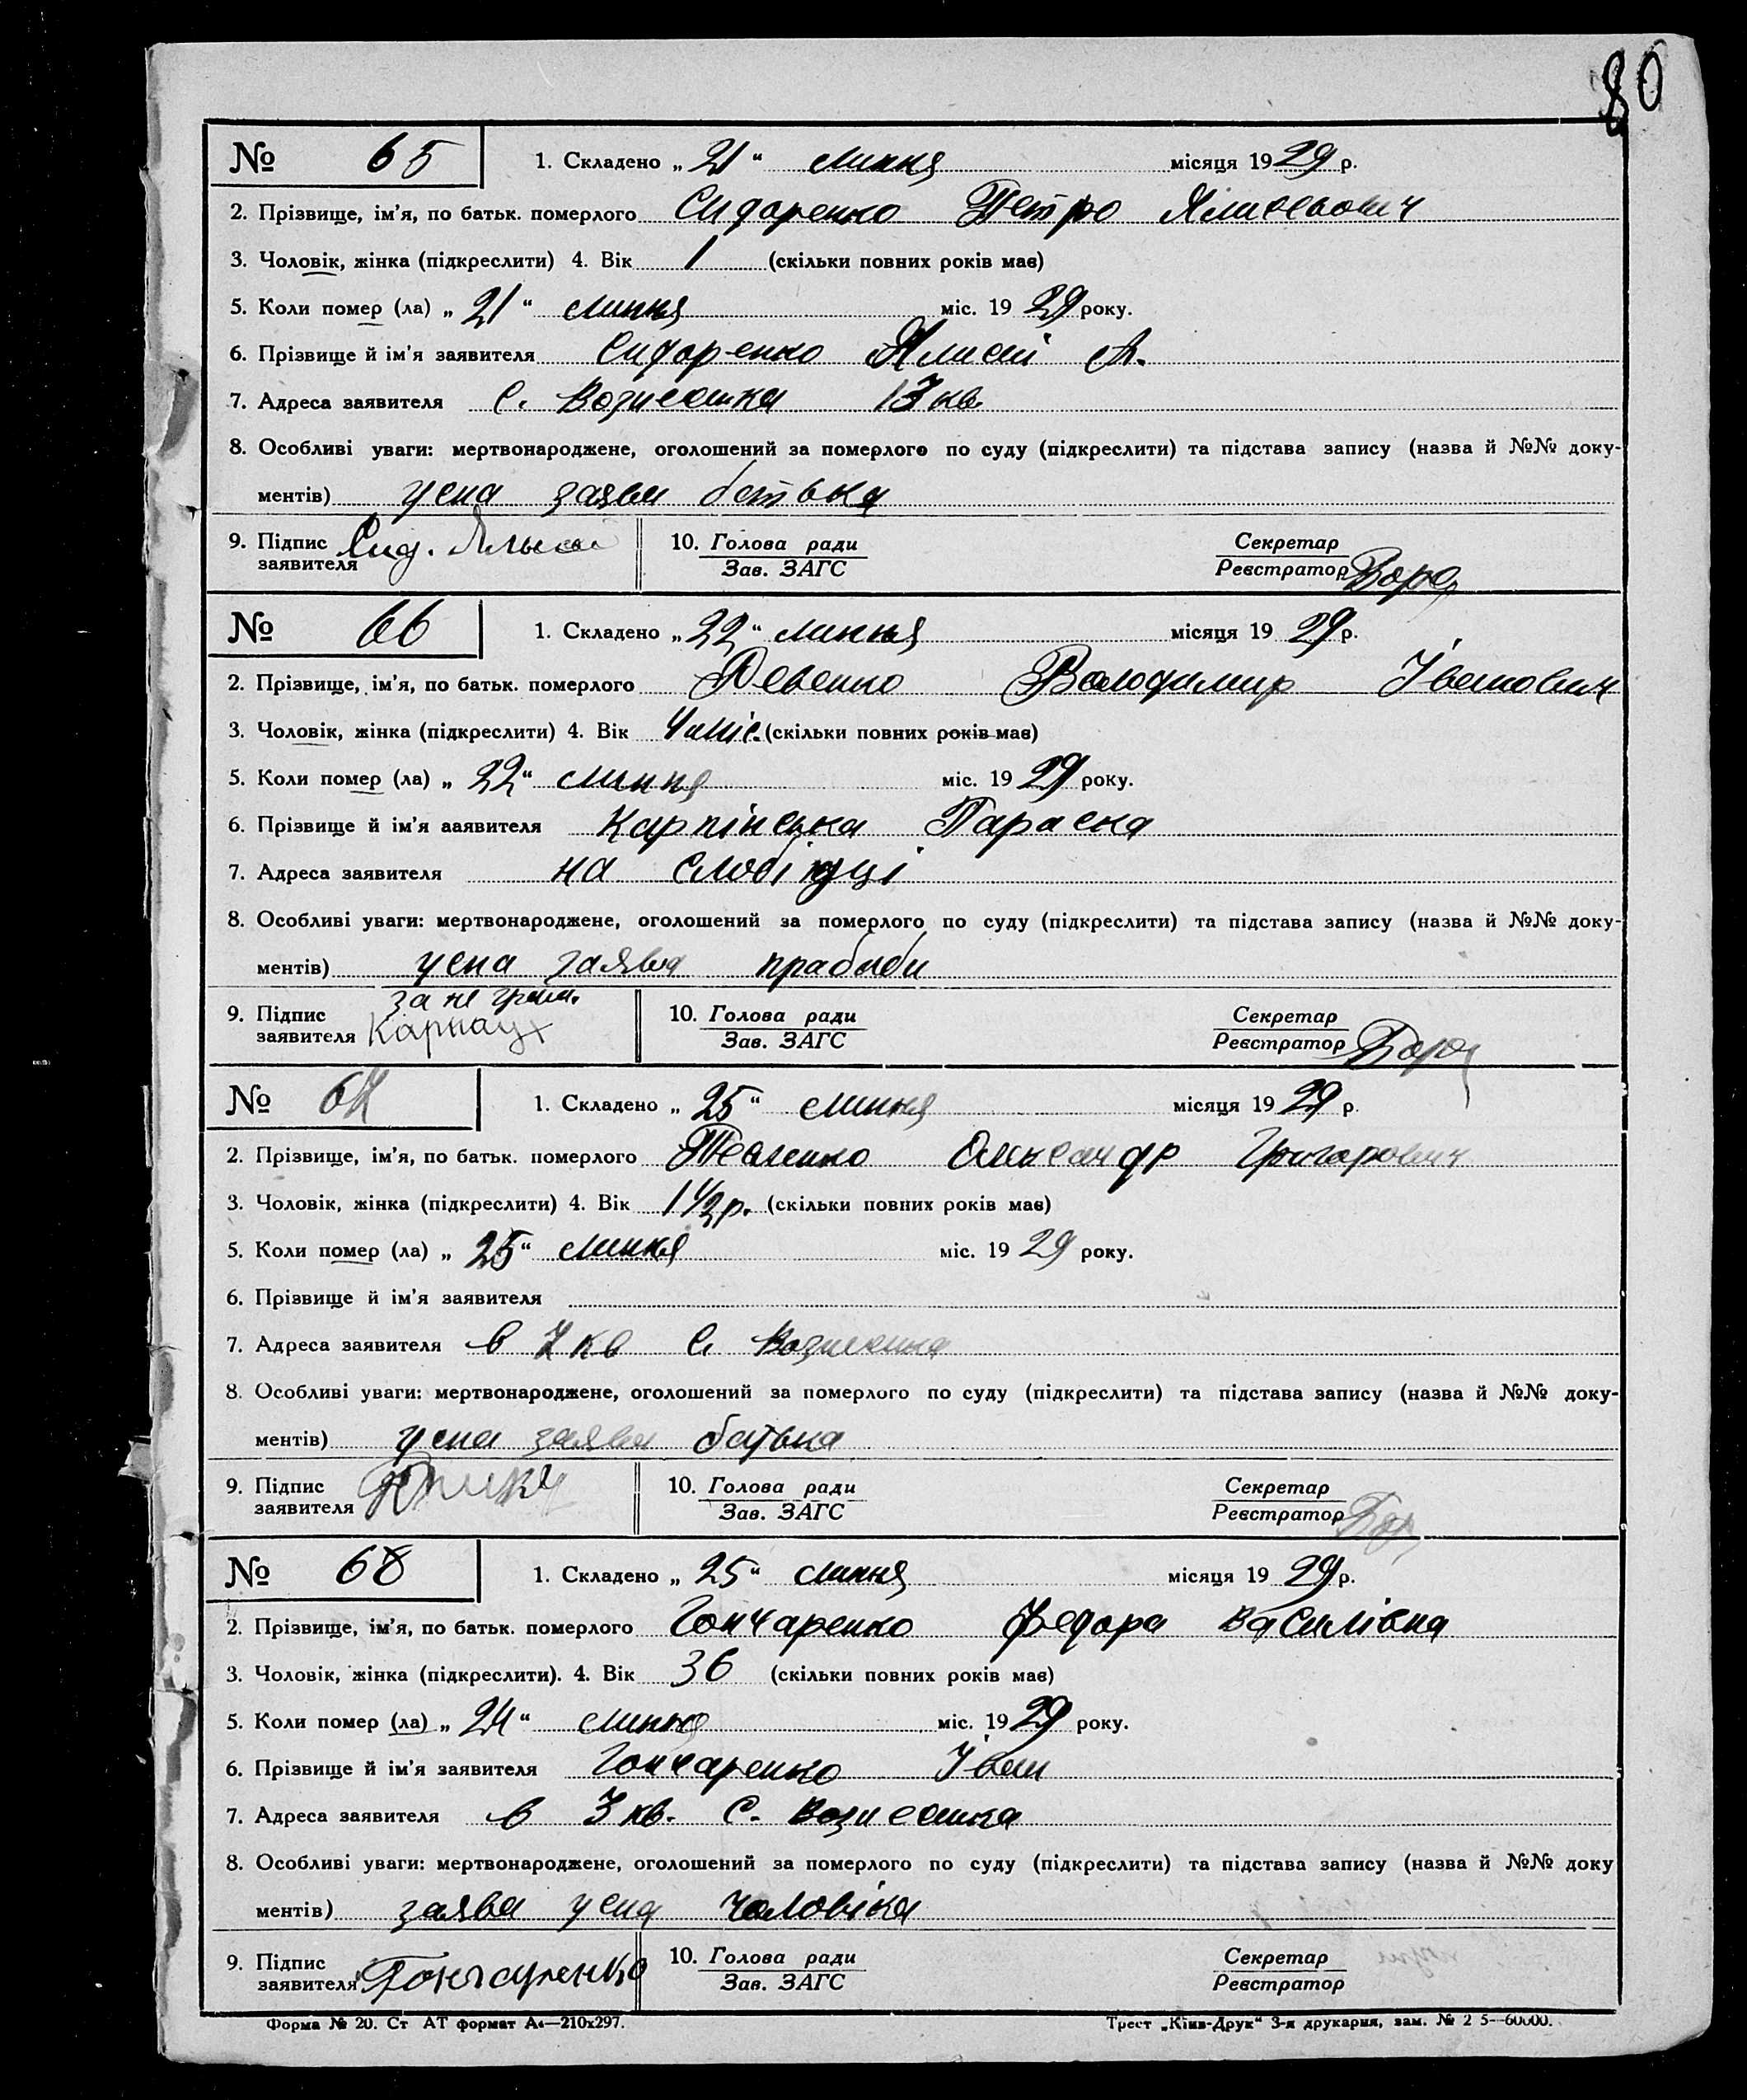 80
№ 65 1. Складено „ 21 “ липня місяця 1929 р.
2. Прізвище, ім’я, по батьк. померлого Сидоренко Петро
3. Чоловік, жінка (підкреслити) 4. Вік 1 (скільки повних років має)
5. Коли помер (ла) „ 21 “ липня міс. 19 29 року.
6. Прізвище й ім’я заявителя Сидоренко
7. Адреса заявителя с. Вознесенка 13 кв.
8. Особливі уваги: мертвонароджене, оголошений за померлого по суду (підкреслити) та підстава запису (назва й №№ доку-
ментів) усна заява батька
9. Підпис заявителя Сид. 10. Голова ради Секретар
Зав. ЗАГС Реєстратор
№ 66 1. Складено „ 22 “ липня місяця 19 29 р.
2. Прізвище, ім’я, по батьк. померлого Левенко Володимир Іванович
3. Чоловік, жінка (підкреслити) 4. Вік 4 міс. (скільки повних років має)
5. Коли помер (ла) „ 22 “ липня міс. 19 29 року.
6. Прізвище й ім’я ааявителя Карпінська Параска
7. Адреса заявителя на слобідці
8. Особливі уваги: мертвонароджене, оголошений за померлого по суду (підкреслити) та підстава запису (назва й №№ доку-
ментів) усна заява прабаби
за не грам.
9. Підпис заявителя Карнаух 10. Голова ради Секретар
Зав. ЗАГС Реєстратор
№ 67 1. Складено „ 25 “ липня місяця 19 29 р.
2. Прізвище, ім’я, по батьк. померлого Олександр Григорович
3. Чоловік, жінка (підкреслити) 4. Вік 1 1/2 р. (скільки повних років має)
5. Коли помер (ла) „ 25 “ липня міс. 19 29 року.
6. Прізвище й ім’я заявителя
7. Адреса заявителя в 7 кв с. Вознесенка
8. Особливі уваги: мертвонароджене, оголошений за померлого по суду (підкреслити) та підстава запису (назва й №№ доку-
ментів) усна заява батька
9. Підпис заявителя 10. Голова ради Секретар
Зав. ЗАГС Реєстратор
№ 68 1. Складено „ 25 “ липня місяця 19 29 р.
2. Прізвище, ім’я, по батьк. померлого Гончаренко Федора Василівна
3. Чоловік, жінка (підкреслити). 4. Вік 36 (скільки повних років має)
5. Коли помер (ла) „ 24 “ липня міс. 19 29 року.
6. Прізвище й ім’я заявителя Гончаренко Іван
7. Адреса заявителя в 3 кв. с. Вознесенка
8. Особливі уваги: мертвонароджене, оголошений за померлого по суду (підкреслити) та підстава запису (назва й №№ доку
ментів) заява усна чоловіка
9. Підпис заявителя Гончаренко 10. Голова ради Секретар
Зав. ЗАГС Реєстратор
Форма № 20. Ст АТ формат А4—210х297. Трест „Київ-Друк“ 3-я друкарня, зам. № 2 5—60000.